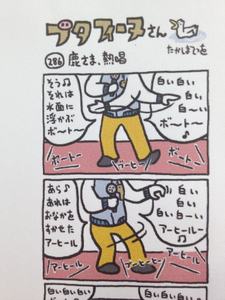 ブタフィーヌさん
たかしまてつを
286 鹿さま、熱唱
白い白い
白い
白〜い
ボート〜♪
そう♫
それは
水面に
浮かぶ
ボ〜ト〜
ボートー
ブーヒー
ボートー
白い
白い
白いーい
アーヒールー♪
あら♪
あれは
おなかを
すかせた
アーヒール
アーヒール
ブーヒーヒー
アーヒール
白い白い